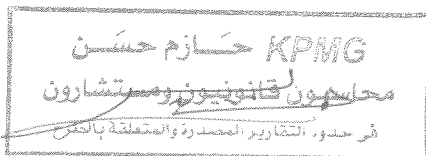 KPMG حازم حسن
محاسبون قانونيون ومستشارون
في حدود التقارير المصدرة والمتعلقة بالفحص